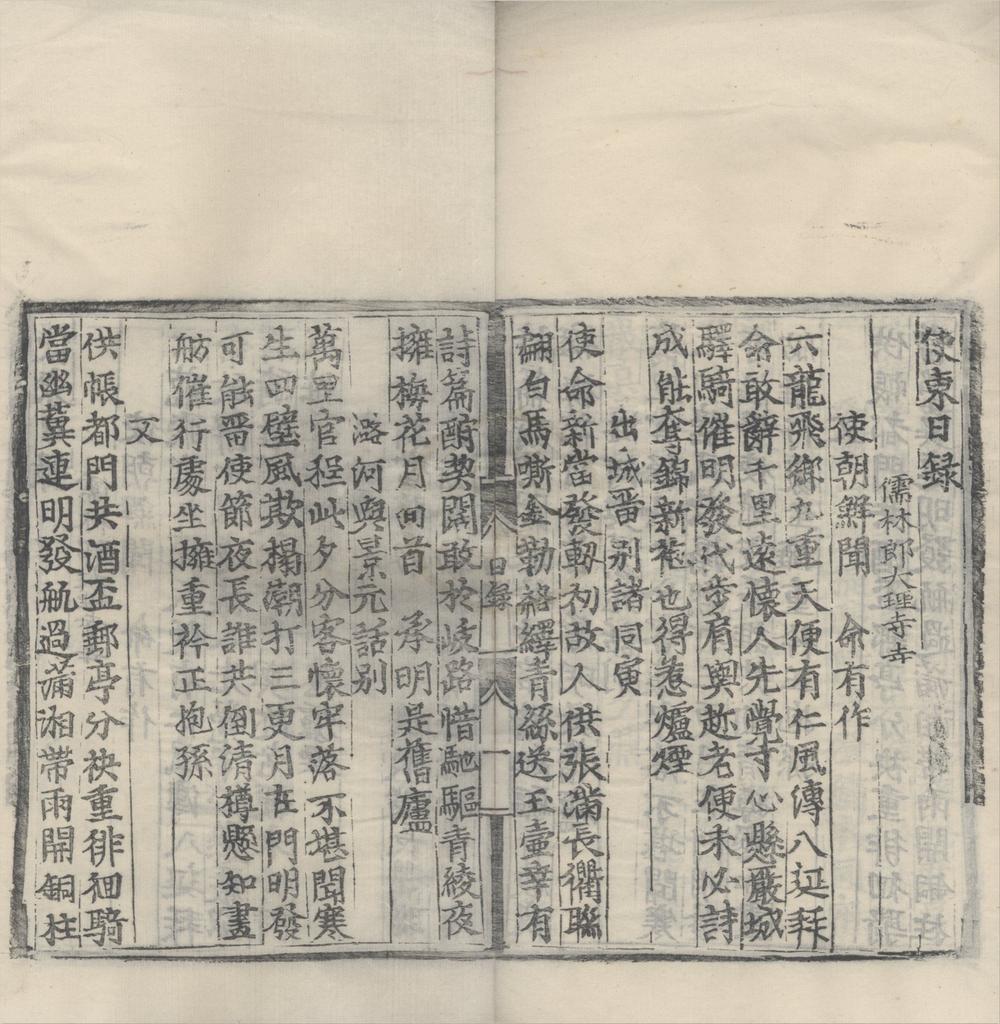 使東日録
儒林郎大理寺寺
使朝鮮聞　命有作
六龍飛鄉九重天便有仁風傳八延拜
命敢辭千里遠懷人先覺寸心懸嚴城
驛騎催明發代步肩輿趂老便未必詩
成能奪錦新袍也得惹爐煙
出城畱别諸同寅
使命新當發軔初故人供張滿長衢聯
翩白馬嘶金勒絡繹青絲送玉壷幸有
日録
一
詩篇酧契闊敢於岐路惜馳驅青綾夜
擁梅花月囬首　承明是舊廬
潞河與景元話别
萬里官程此夕分客懷牢落不堪聞寒
生四壁風欺榻潮打三更月在門明發
可能畱使節夜長誰共倒清樽懸知畫
舫催行處坐擁重衿正抱孫
又
供帳都門共酒盃郵亭分袂重徘徊騎
當幽冀連明發航過瀟湘帶雨開銅柱